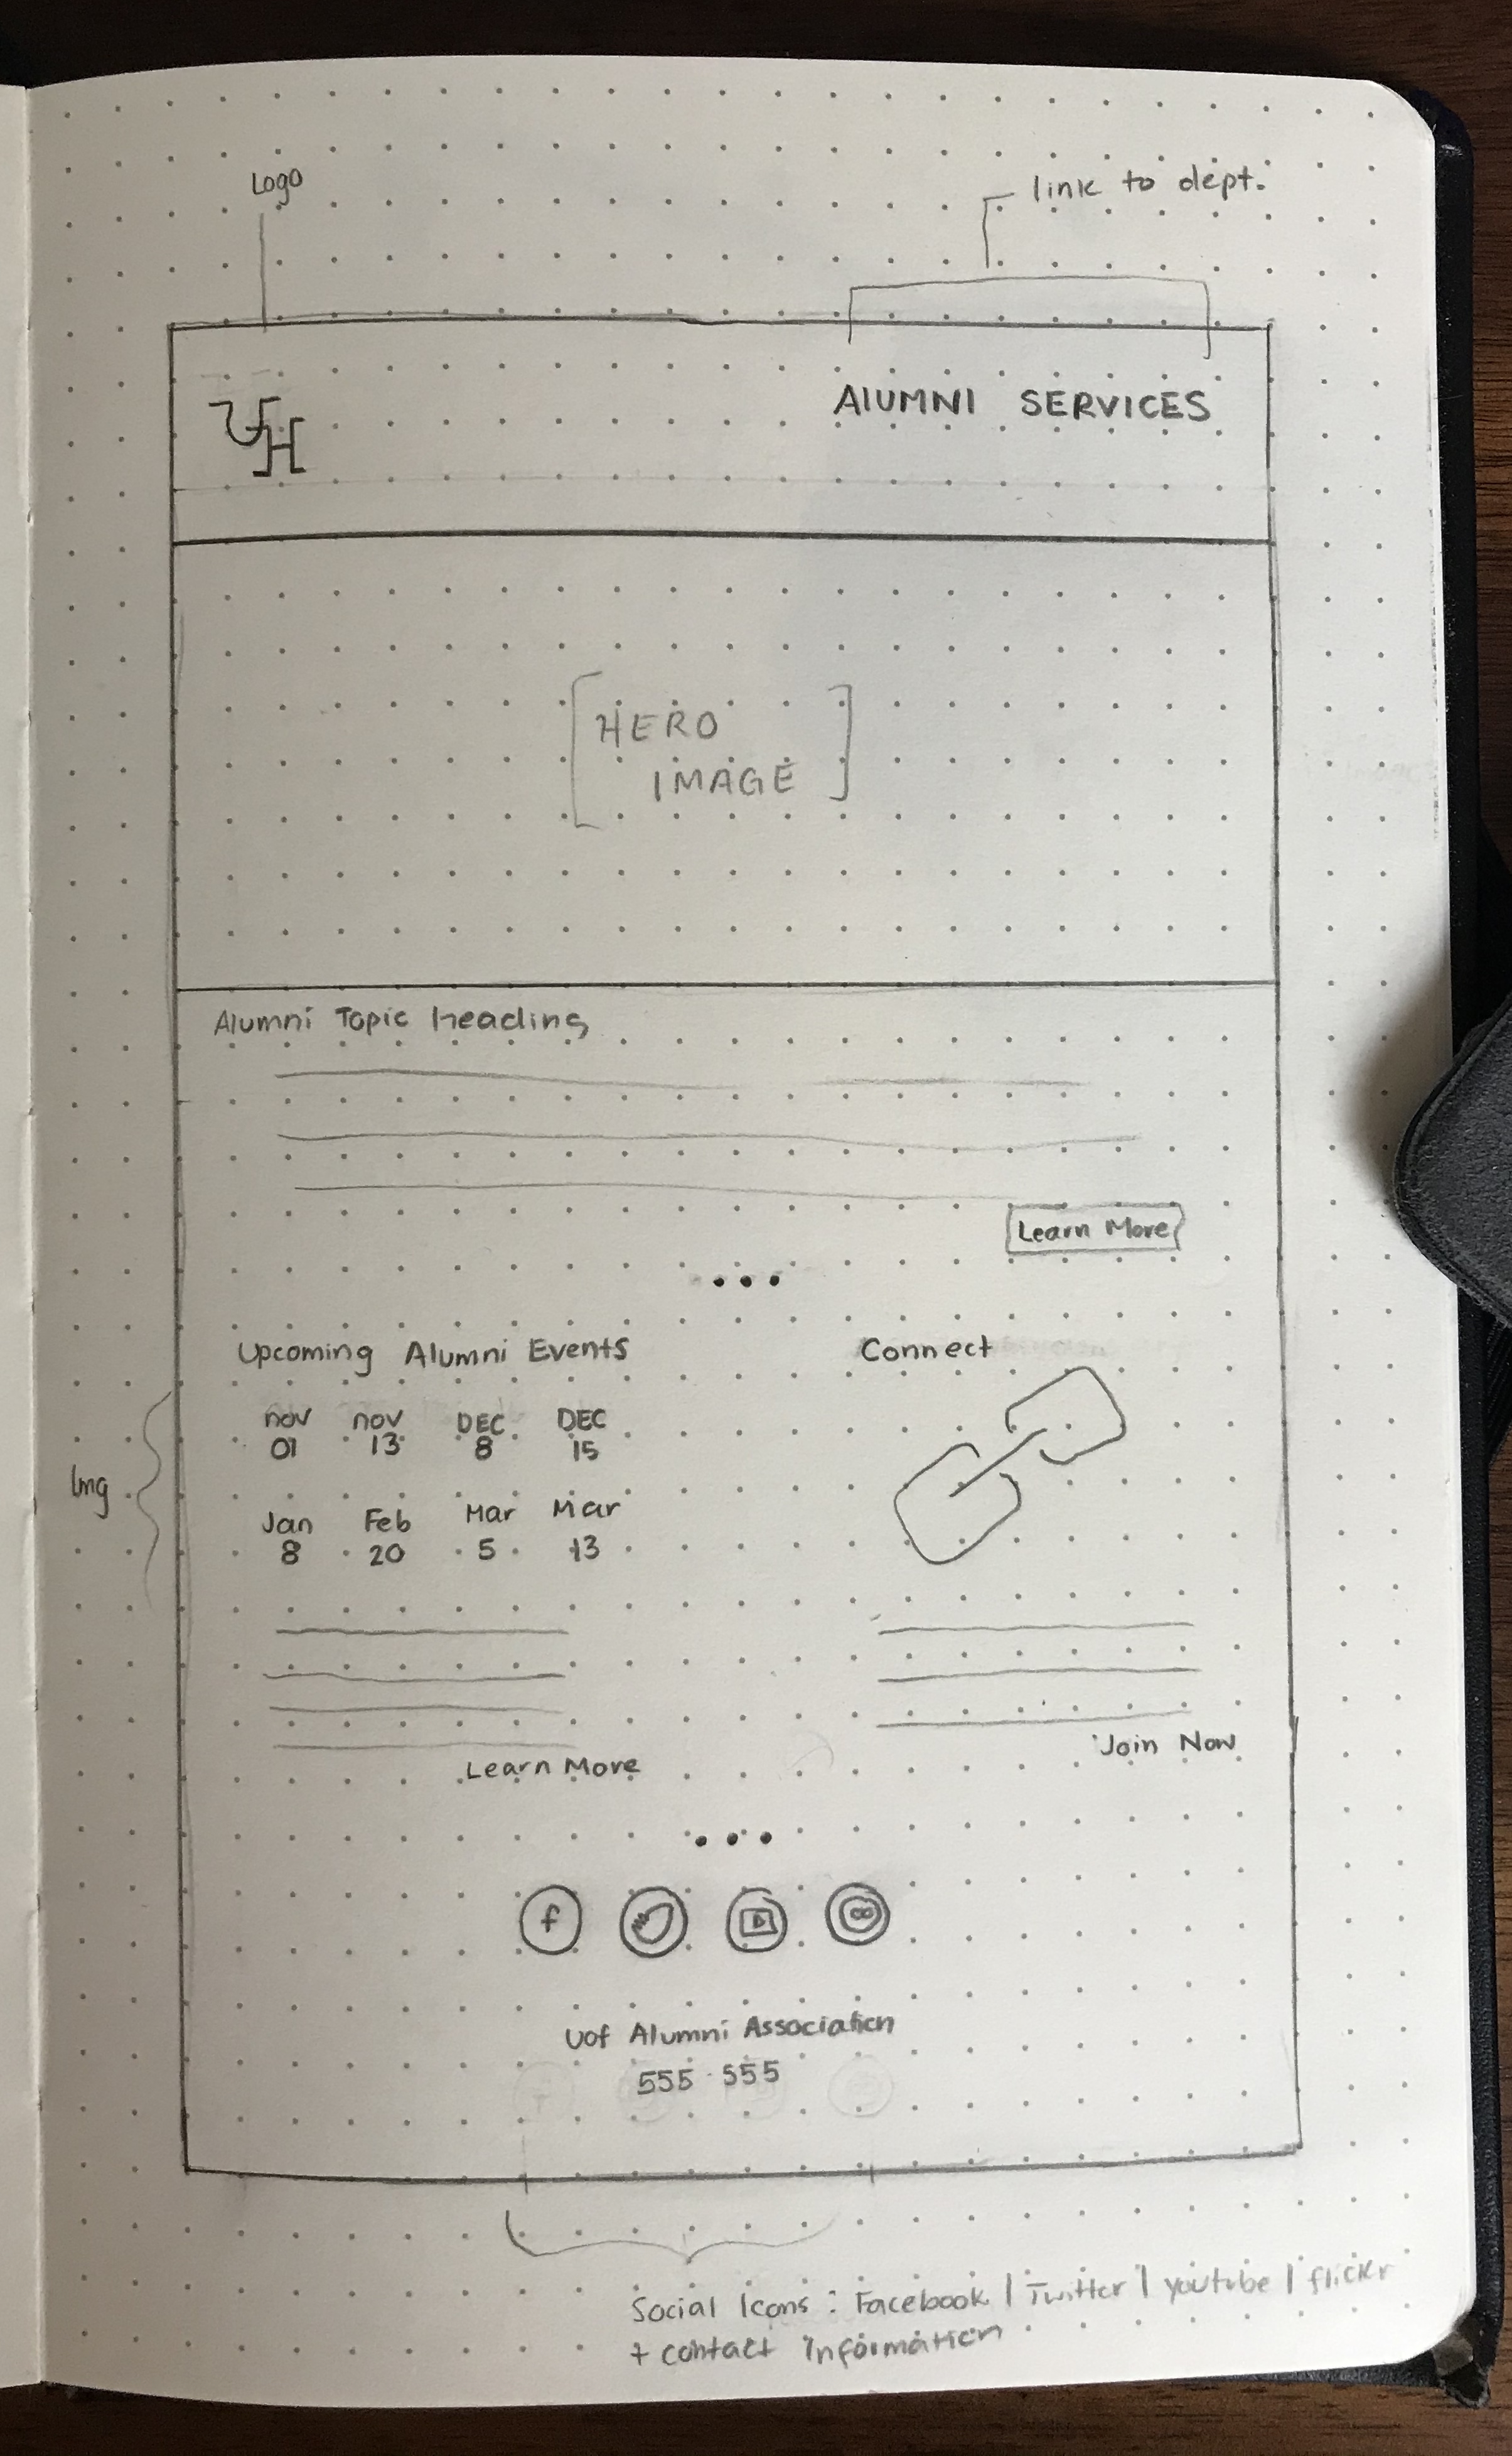 Logo
link to dept.
UH
ALUMNI SERVICES
HERO
IMAGE
Alumni Topic heading
Learn More
Upcoming Alumni Events
Connect
nov nov DEC DEC
01 13 8 15
Img
Jan Feb Mar Mar
8 20 5 13
Join Now
Learn More
f
Uof Alumni Association
555 555
Social Icons : Facebook | Twitter | youtube | flickr
+ contact Information